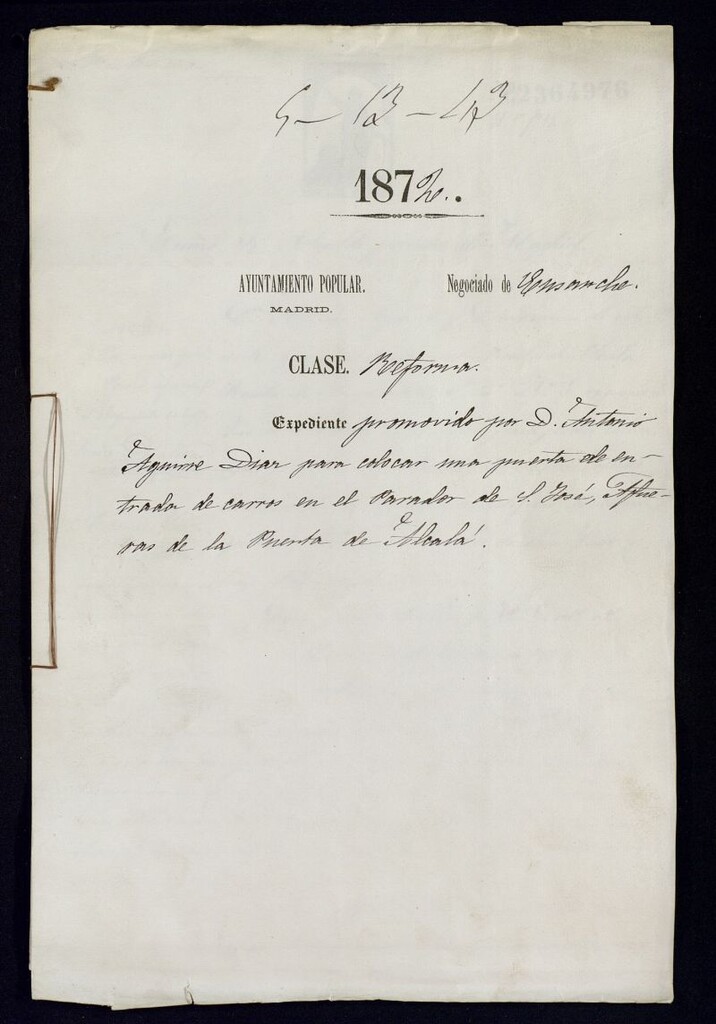 5- 13 - 43
1872.
AYUNTAMIENTO POPULAR.
MADRID.
Negociado de Ensanche.
CLASE. Reforma.
Expediente promovido por D. Antonio
Aguirre Diaz para colocar una puerta de en-
trada de carros en el Parador de S. José, Afue-
ras de la Puerta de Alcalá.